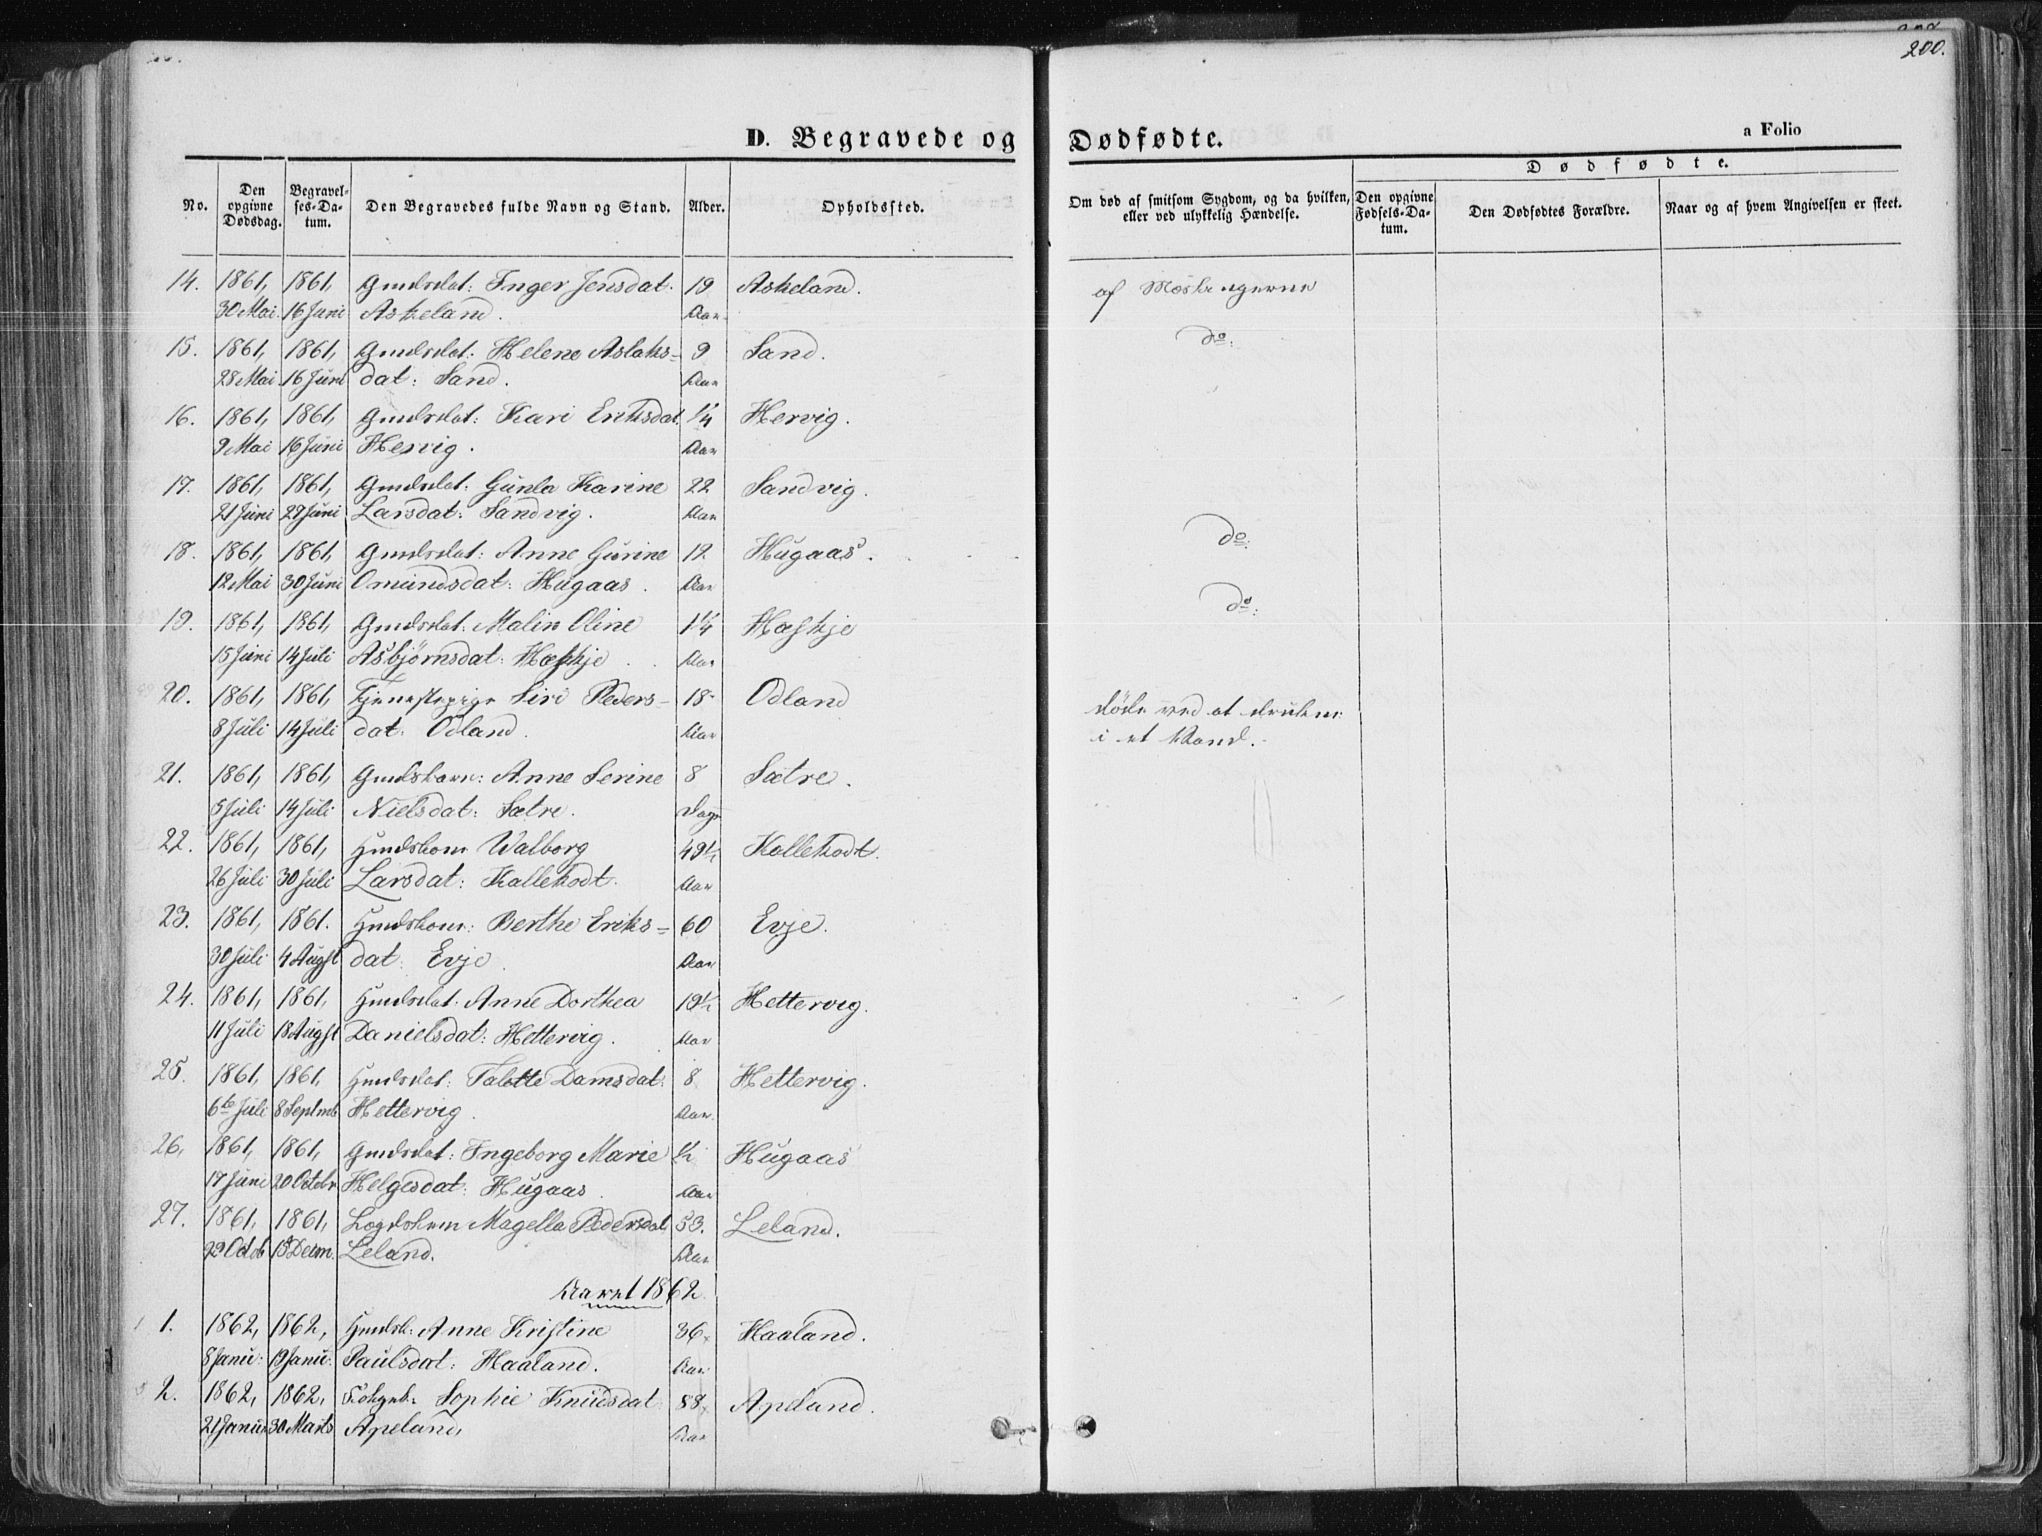 200.
D. Begravede og Dødfødte.
a Folio
Dødfødte.
No. Den opgivne Dødsdag. Begravelses-Datum. Den Begravedes fulde Navn og Stand. Alder. Opholdssted. Om død af smitsom Sygdom, og da hvilken, eller ved ulykkelig Hændelse. Den opgivne Fødsels-Datum. Den Dødfødtes Forældre. Naar og af hvem Angivelsen er skeet.
14. 1861, 1861, Gmdsdat: Inger Jensdat. 19 Askeland. af
30 Mai. 16 Juni Askeland. Aar
15. 1861, 1861, Gmdsdat: Helene Aslaks= 9 Sand. do:
28 Mai 16 Juni dat: Sand. Aar
16. 1861, 1861, Gmdsdat: Kari Eriksdat. 1/4 Hervig.
9 Mai 16 Juni Hervig. Aar
17. 1861, 1861, Gmdsdat: Gunla Karine 22 Sandvig.
21 Juni 29 Juni Larsdat: Sandvig. Aar do:
18. 1861, 1861, Gmdsdat: Anne Gurine 12 Hugaas.
12 Mai 30 Juni Omundsdat: Hugaas. Aar do:
19. 1861, 1861, Gmdsdat: Malin Oline 1 1/4 Hæskje
15 Juni 14 Juli Asbjørnsdat: Hæskje. Aar
20. 1861, 1861, Tjenestepige Siri Peders- 18 Odland døde ved at drukne
8 Juli 14 Juli dat: Odland. Aar i et Vand.
21. 1861, 1861, Gmdsbarn: Anne Serine 8 Sætre.
5 Juli 14 Juli Nielsdat: Sætre. Dage
22. 1861, 1861, Hmdskone Walborg 49 1/2 Kollekodt.
26 Juli 30 Juli Larsdat: Kallekodt. Aar
23. 1861, 1861. Hmdskone: Berthe Eriks= 60 Evje.
30 Juli 4 Augst dat: Evje. Aar
24. 1861, 1861, Hmdsdat: Anne Dorthea 19 1/2 Hettervig.
11 Juli 18 Augst Danielsdat: Hettervig. Aar
25. 1861, 1861, Hmdsdat: Talette Damsdat: 8 Hettervig.
6te Juli 8 Septmb Hettervig. Aar.
26. 1861, 1861, Gmdsdat: Ingeborg Marie 1/2 Hugaas
17 Juni 20 Octobr Helgesdat: Hugaas. Aar
27. 1861, 1861, Magella Pedersdat 53. Leland.
29 Octob 15 Decm. Leland. Aar
Aaret 1862.
1. 1862, 1862, Hmdsk: Anne Kristine 36 Haaland.
8 Janu: 19 Janu: Paulsdat: Haaland. Aar
2. 1862, 1862, Sophie Knudsdat 88 Apeland.
21 Janu 30 Marts Apeland, Aar